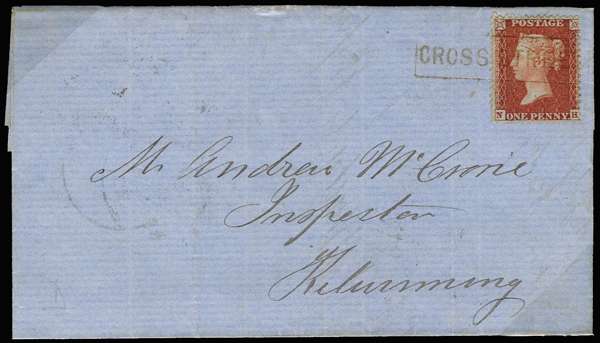 POSTAGE
CROSS
N ONE PENNY H
Mr Andrew McCrone
Inspector
Kilwinning